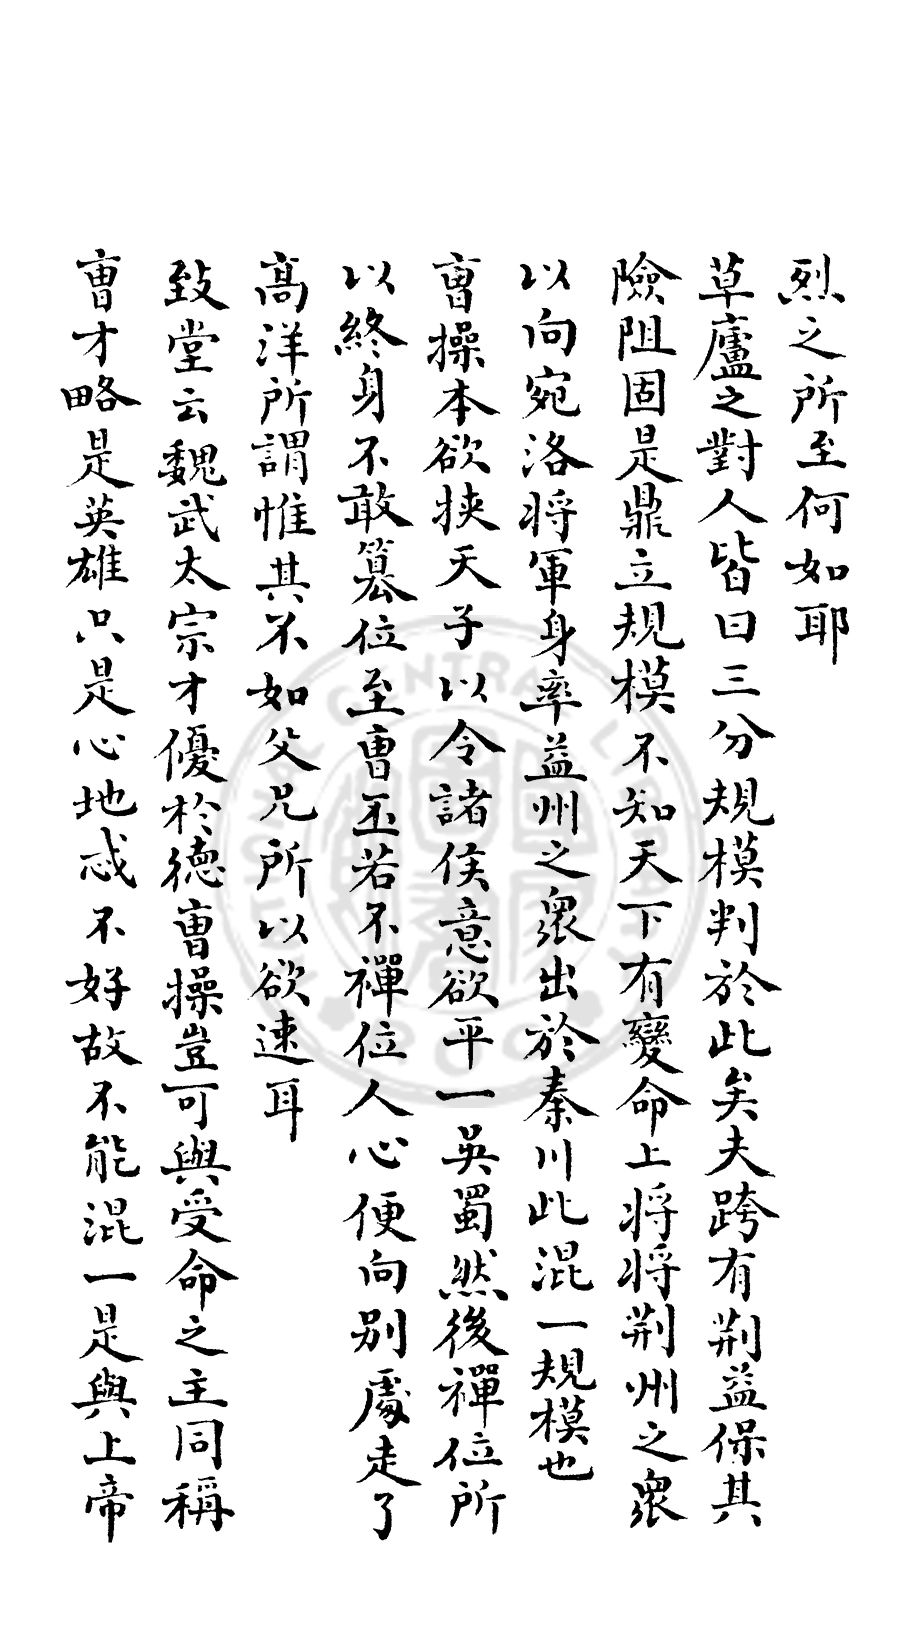 烈之所至何如耶
草廬之對人皆曰三分規模判於此矣夫跨有荆益保其
險阻固是鼎立規模不知天下有變命上将将荆州之衆
以向宛洛将軍身率益州之衆出於秦川此混一規模也
曹操本欲挟天子以令諸侯意欲平一吳蜀然後禪位所
以終身不敢篡位至曹丕若不禪位人心便向别處走了
高洋所謂惟其不如父兄所以欲速耳
致堂云魏武太宗才優於德曹操豈可與受命之主同稱
曹才略是英雄只是心地忒不好故不能混一是與上帝